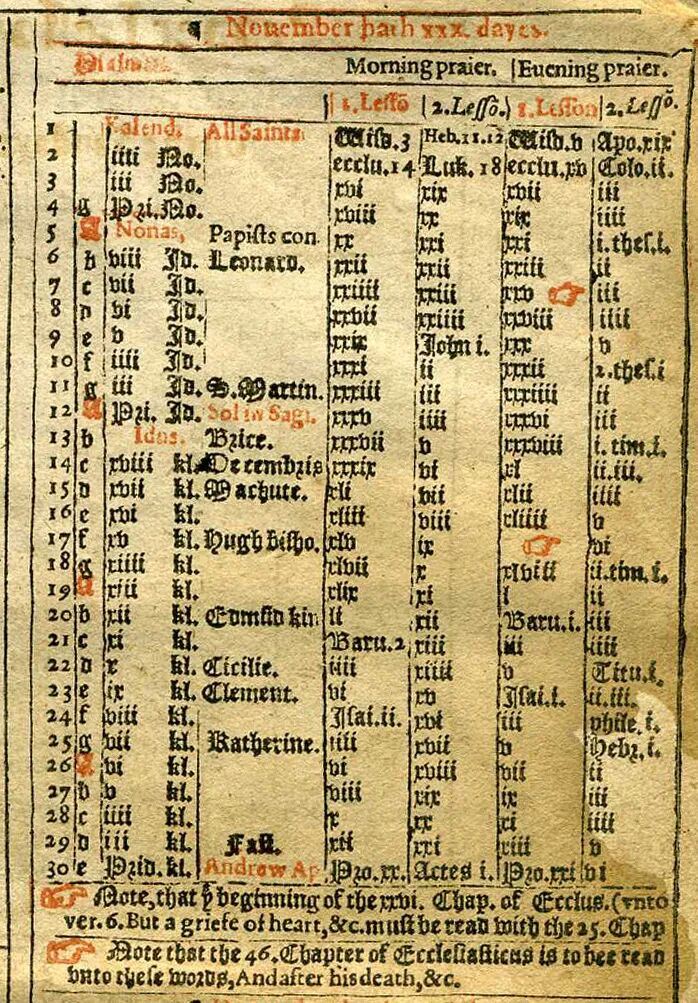 Nouember hath xxx. dayes.
Psalmes. Morning praier. Euening praier.
1. Lessō 2. Lessō. 1. Lesson 2. Lessō.
1 Kalend. All Saints Wisd. 3 Heb. 11. 12 Wisd. v Apo. xix
2 iiii No. ecclu. 14 Luk. 18 ecclu. xv Colo. ii.
3 iii No. xvi xix xvii iii
4 g Pri. No. xviii xx xix iiii
5 A Nonas, Papists con. xx xxi xxi i. thes. i.
6 b viii Id. Leonard. xxii xxii xxiii ii
7 c vii Id. xxiiii xxiii xxv ☞ iii
8 d vi Id. xxvii xxiiii xxviii iiii
9 e v Id. xxix John i. xxx v
10 f iiii Id. xxxi ii xxxii 2. thes. i
11 g iii Id. S. Martin. xxxiii iii xxxiiii ii
12 A Pri. Id. Sol in Sagi. xxxv iiii xxxvi iii
13 b Idus. Brice. xxxvii v xxxviii i. tim. i.
14 c xviii kl. Decembris xxxix vi xl ii. iii.
15 d xvii kl. Machute. xli vii xlii iiii
16 e xvi kl. xliii viii xliiii v
17 f xv kl. Hugh bisho. xlv ix ☞ vi
18 g xiiii kl. xlvii x xlviii ii. tim. i.
19 A xiii kl. xlix xi l ii
20 b xii kl. Edmūd kin li xii Baru. i. iii
21 c xi kl. Baru. 2 xiii iii iiii
22 d x kl. Cicilie. iiii xiiii v Titu. i.
23 e ix kl. Clement. vi xv Isai. i. ii. iii.
24 f viii kl. Isai. ii. xvi iii phile. i.
25 g vii kl. Katherine. iiii xvii v Hebr. i.
26 A vi kl. vi xviii vii ii
27 b v kl. viii xix ix iii
28 c iiii kl. x xx xi iiii
29 d iii kl. Fast. xii xxi xiii v
30 e Prid. kl. Andrew Ap Pro. xx. Actes i. Pro. xxi vi
☞ Note, that yᵉ beginning of the xxvi. Chap. of Ecclus. (vnto
ver. 6. But a griefe of heart, &c. must be read with the 25. Chap
☞ Note that the 46. Chapter of Ecclesiasticus is to bee read
vnto these words, And after his death, &c.